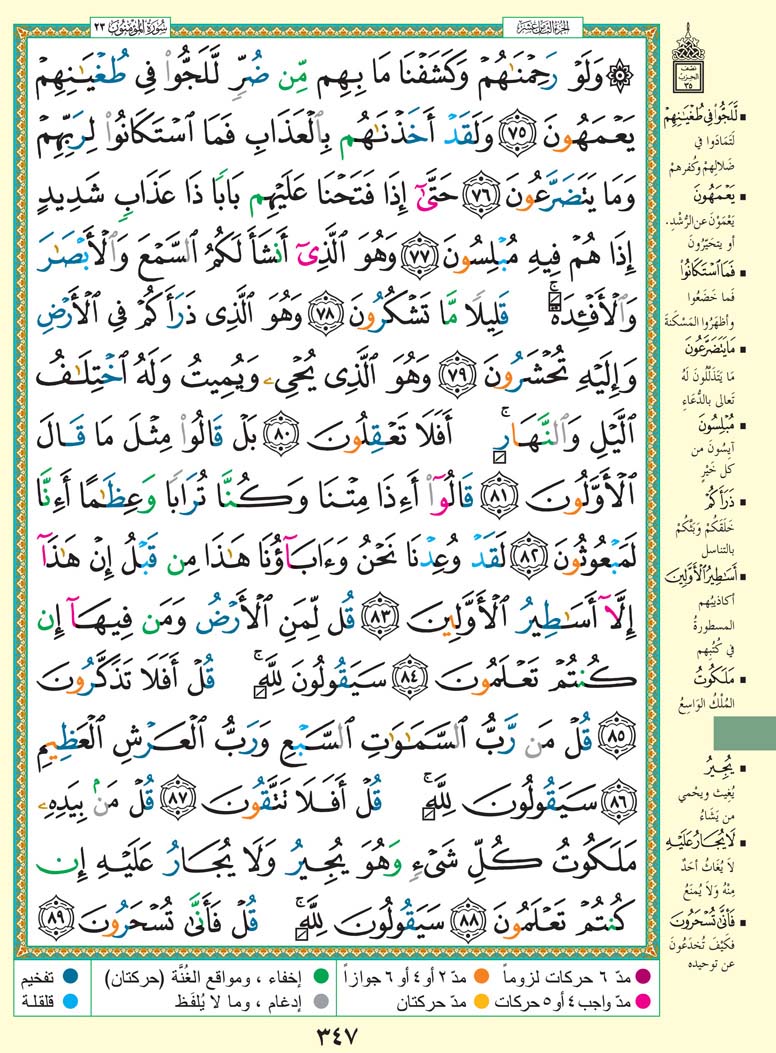 سُورَةُ المُؤْمِنُون ٢٣
الجُزءُ الثَّامِنَ عَشَرَ
۞ وَلَوْ رَحِمْنَٰهُمْ وَكَشَفْنَا مَا بِهِم مِّن ضُرٍّ لَّلَجُّوا۟ فِى طُغْيَٰنِهِمْ
يَعْمَهُونَ ٧٥ وَلَقَدْ أَخَذْنَٰهُم بِٱلْعَذَابِ فَمَا ٱسْتَكَانُوا۟ لِرَبِّهِمْ
وَمَا يَتَضَرَّعُونَ ٧٦ حَتَّىٰٓ إِذَا فَتَحْنَا عَلَيْهِم بَابًا ذَا عَذَابٍ شَدِيدٍ
إِذَا هُمْ فِيهِ مُبْلِسُونَ ٧٧ وَهُوَ ٱلَّذِىٓ أَنشَأَ لَكُمُ ٱلسَّمْعَ وَٱلْأَبْصَٰرَ
وَٱلْأَفْـِٔدَةَ ۚ قَلِيلًا مَّا تَشْكُرُونَ ٧٨ وَهُوَ ٱلَّذِى ذَرَأَكُمْ فِى ٱلْأَرْضِ
وَإِلَيْهِ تُحْشَرُونَ ٧٩ وَهُوَ ٱلَّذِى يُحْىِۦ وَيُمِيتُ وَلَهُ ٱخْتِلَٰفُ
ٱلَّيْلِ وَٱلنَّهَارِ ۚ أَفَلَا تَعْقِلُونَ ٨٠ بَلْ قَالُوا۟ مِثْلَ مَا قَالَ
ٱلْأَوَّلُونَ ٨١ قَالُوٓا۟ أَءِذَا مِتْنَا وَكُنَّا تُرَابًا وَعِظَٰمًا أَءِنَّا
لَمَبْعُوثُونَ ٨٢ لَقَدْ وُعِدْنَا نَحْنُ وَءَابَآؤُنَا هَٰذَا مِن قَبْلُ إِنْ هَٰذَآ
إِلَّآ أَسَٰطِيرُ ٱلْأَوَّلِينَ ٨٣ قُل لِّمَنِ ٱلْأَرْضُ وَمَن فِيهَآ إِن
كُنتُمْ تَعْلَمُونَ ٨٤ سَيَقُولُونَ لِلَّهِ ۚ قُلْ أَفَلَا تَذَكَّرُونَ
٨٥ قُلْ مَن رَّبُّ ٱلسَّمَٰوَٰتِ ٱلسَّبْعِ وَرَبُّ ٱلْعَرْشِ ٱلْعَظِيمِ
٨٦ سَيَقُولُونَ لِلَّهِ ۚ قُلْ أَفَلَا تَتَّقُونَ ٨٧ قُلْ مَنۢ بِيَدِهِۦ
مَلَكُوتُ كُلِّ شَىْءٍ وَهُوَ يُجِيرُ وَلَا يُجَارُ عَلَيْهِ إِن
كُنتُمْ تَعْلَمُونَ ٨٨ سَيَقُولُونَ لِلَّهِ ۚ قُلْ فَأَنَّىٰ تُسْحَرُونَ ٨٩
نصف
الحزب
٣٥
▪ لَّلَجُّوا۟ فِى طُغْيَٰنِهِمْ
لَتَمَادَوا في
ضَلالِهِمْ وكُفرِهمْ
▪ يَعْمَهُونَ
يَعْمَوْنَ عن الرُّشْدِ.
أو يتحَيَّرُونَ
▪ فَمَا ٱسْتَكَانُوا۟
فَما خَضَعُوا
وأظهَرُوا المَسْكَنةَ
▪ مَا يَتَضَرَّعُونَ
مَا يَتَذَلَّلُونَ لَهُ
تَعالى بالدُّعَاءِ
▪ مُبْلِسُونَ
آيِسُونَ من
كل خَيْرٍ
▪ ذَرَأَكُمْ
خَلَقَكُمْ وَبَثَّكُمْ
بالتناسل
▪ أَسَٰطِيرُ ٱلْأَوَّلِينَ
أكاذيبُهم
المسطورةُ
في كُتُبِهم
▪ مَلَكُوتُ
المُلْكُ الوَاسِعُ
▪ يُجِيرُ
يُغِيث ويحْمي
من يَشَاءُ
▪ لَا يُجَارُ عَلَيْهِ
لاَ يُغَاثُ أحَدٌ
مِنْهُ وَلاَ يُمنَعُ
▪ فَأَنَّىٰ تُسْحَرُونَ
فكَيْفَ تُخدَعُونَ
عن توحيده
● مدّ ٦ حركات لزوماً ● مدّ ٢ أو ٤ أو ٦ جوازاً ● إخفاء ، ومواقع الغُنَّة (حركتان) ● تفخيم
● مدّ واجب ٤ أو ٥ حركات ● مدّ حركتان ● إدغام ، وما لا يُلفَظ ● قلقلة
٣٤٧